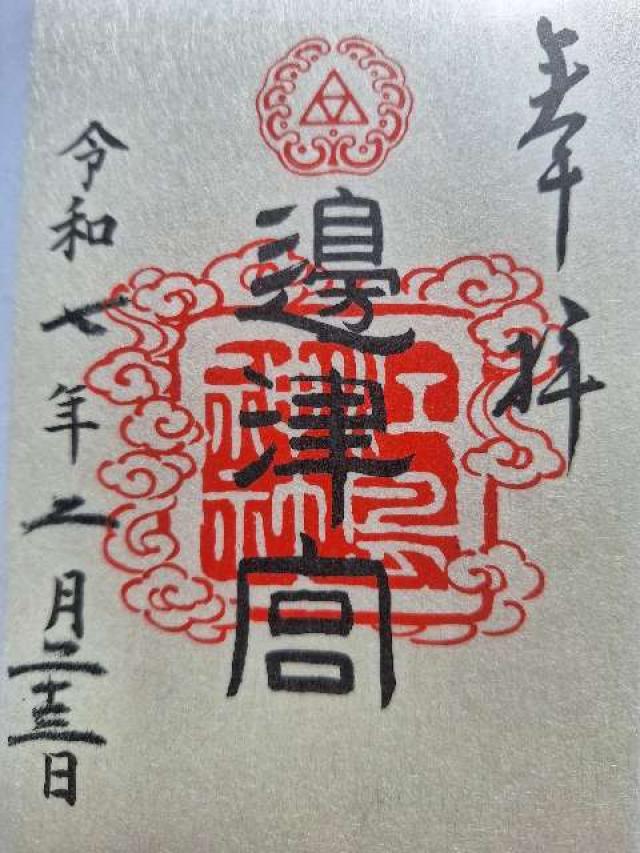 奉拝
邊津宮
令和七年二月二十三日